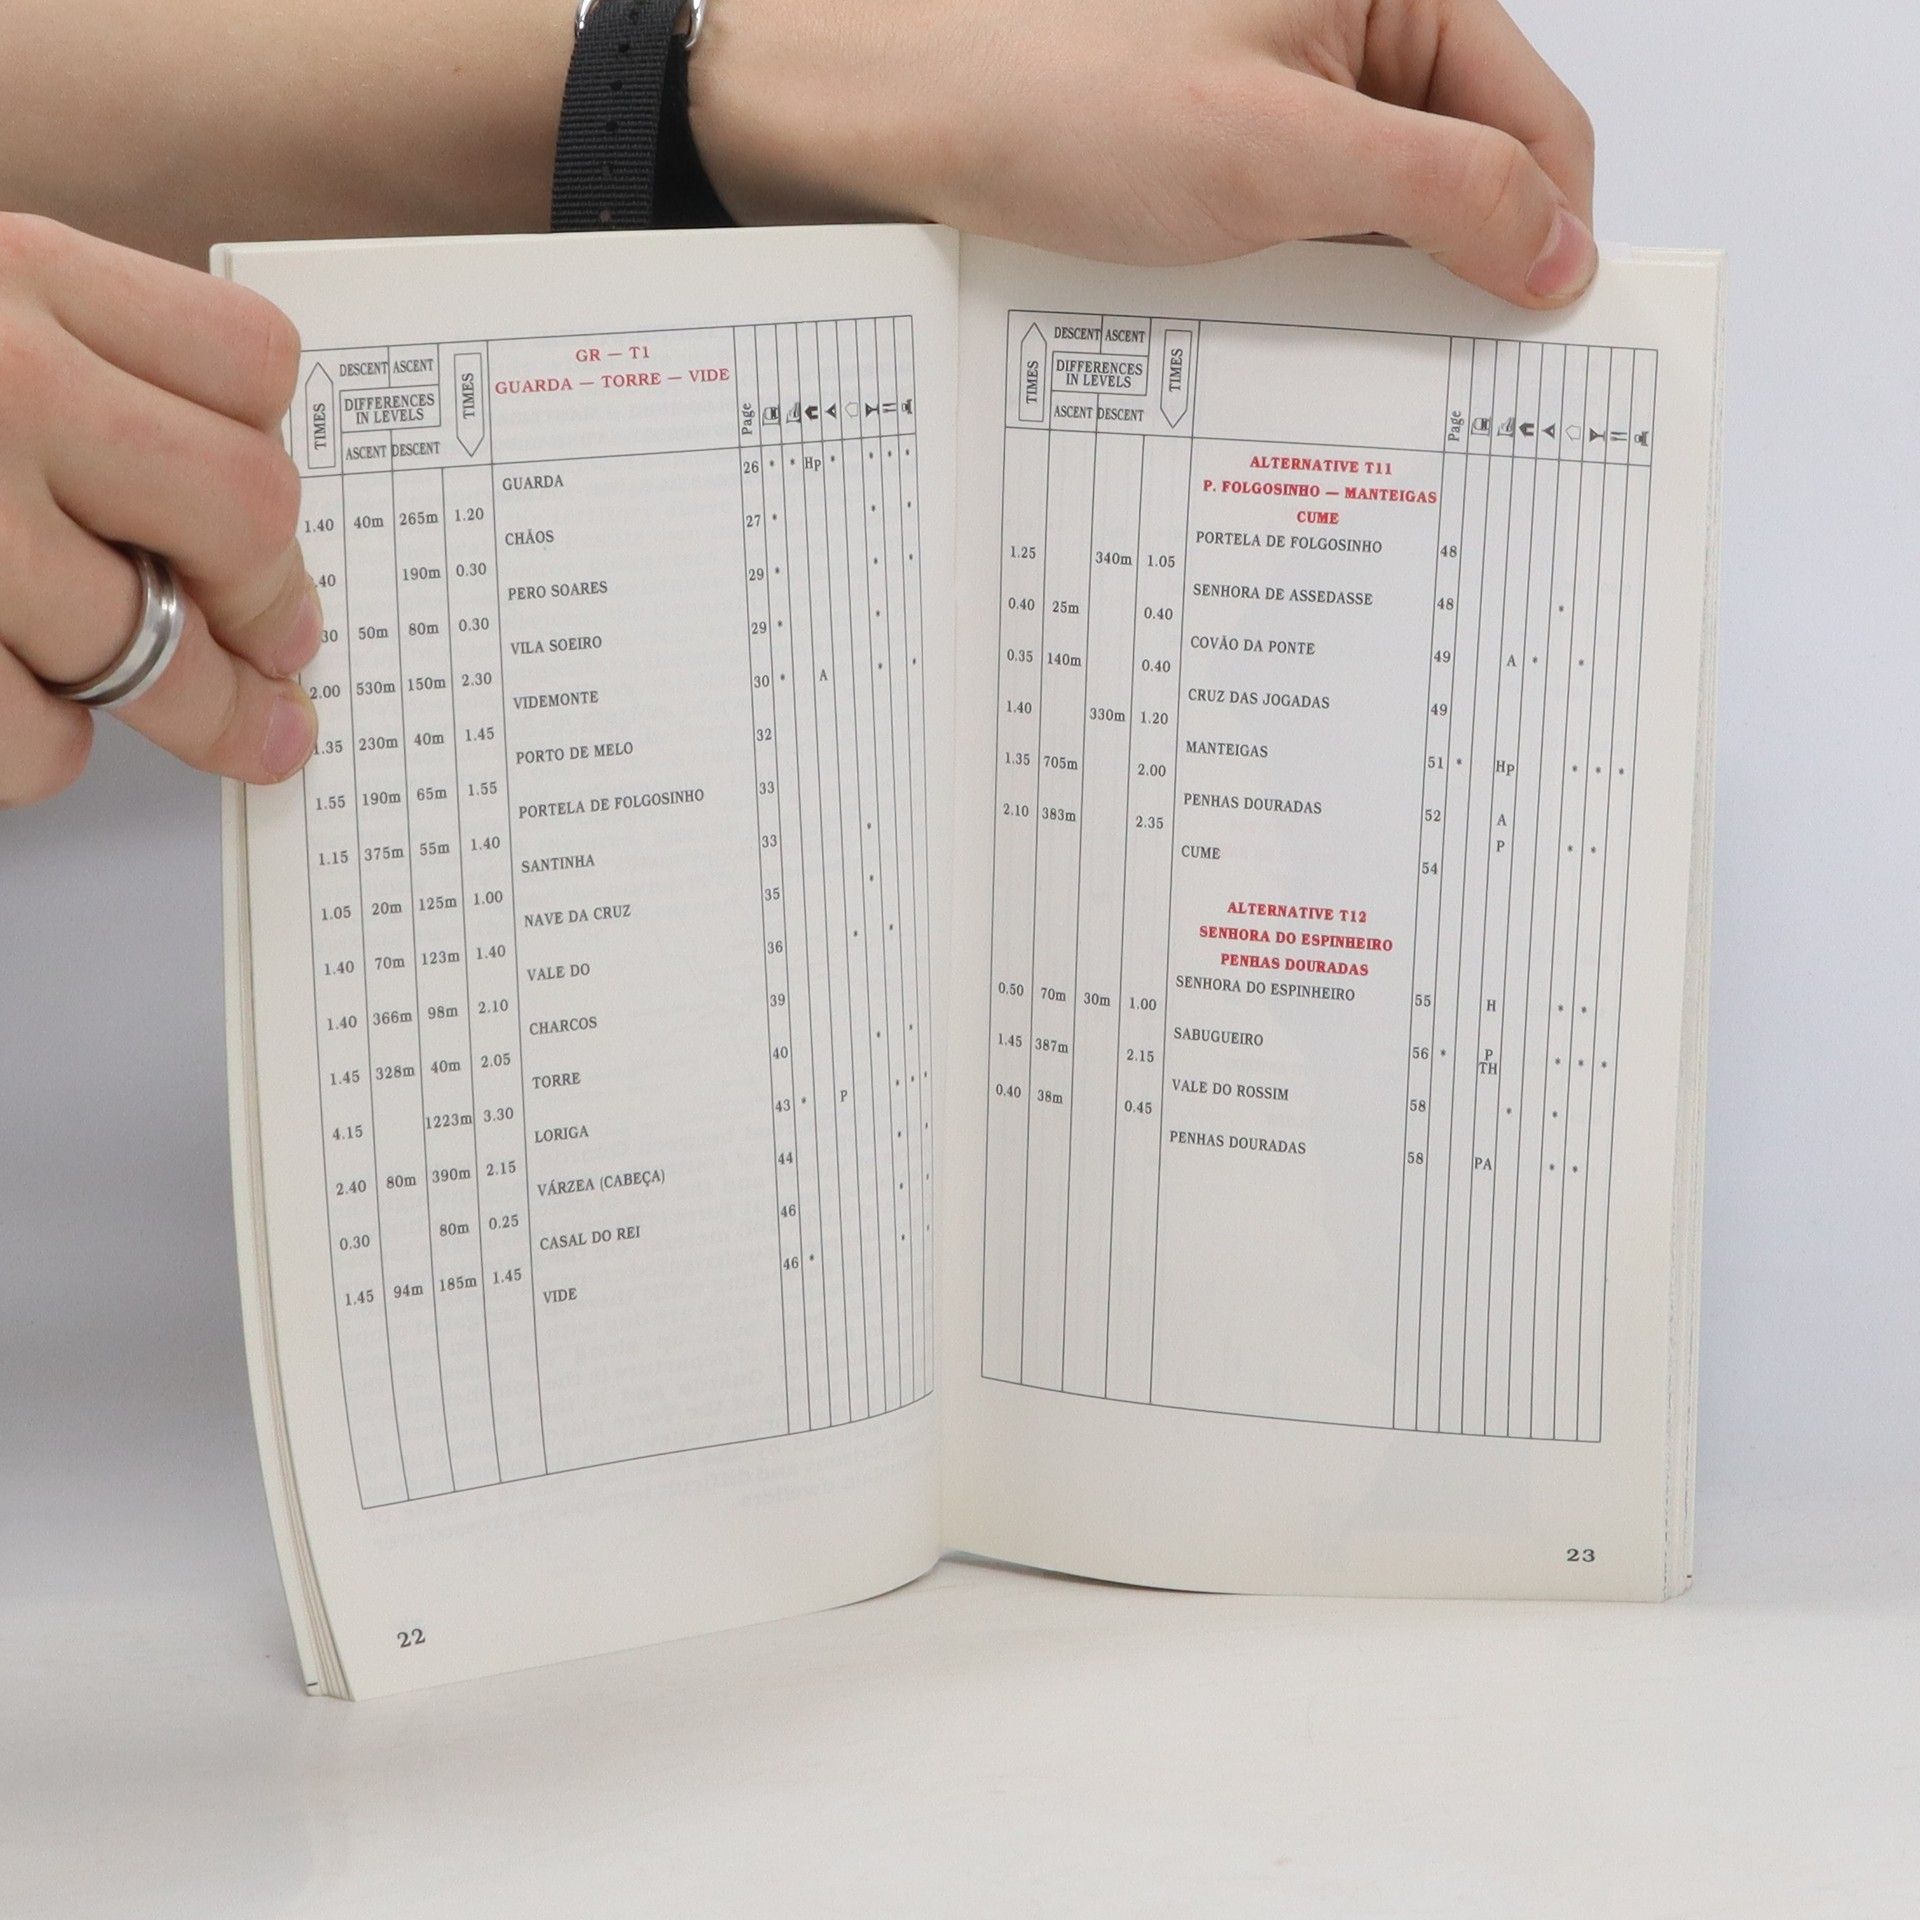 GR — T1
GUARDA — TORRE — VIDE
TIMES
DESCENT ASCENT
DIFFERENCES
IN LEVELS
ASCENT DESCENT
TIMES
Page
GUARDA 26 * * Hp * * * *
1.40 40m 265m 1.20
CHÃOS 27 * * *
.40 190m 0.30
PERO SOARES 29 * * *
30 50m 80m 0.30
VILA SOEIRO 29 * *
2.00 530m 150m 2.30
VIDEMONTE 30 * A * *
1.35 230m 40m 1.45
PORTO DE MELO 32
1.55 190m 65m 1.55
PORTELA DE FOLGOSINHO 33
1.15 375m 55m 1.40
SANTINHA 33 *
1.05 20m 125m 1.00
NAVE DA CRUZ 35 *
1.40 70m 123m 1.40
VALE DO 36 * *
1.40 366m 98m 2.10
CHARCOS 39
1.45 328m 40m 2.05
TORRE 40 * *
4.15 1223m 3.30
LORIGA 43 * P * * *
2.40 80m 390m 2.15
VÁRZEA (CABEÇA) 44 * *
0.30 80m 0.25
CASAL DO REI 46 * *
1.45 94m 185m 1.45
VIDE 46 * * *
22
TIMES
DESCENT ASCENT
DIFFERENCES
IN LEVELS
ASCENT DESCENT
TIMES
Page
ALTERNATIVE T11
P. FOLGOSINHO — MANTEIGAS
CUME
PORTELA DE FOLGOSINHO 48
1.25 340m 1.05
SENHORA DE ASSEDASSE 48 *
0.40 25m 0.40
COVÃO DA PONTE 49 A * *
0.35 140m 0.40
CRUZ DAS JOGADAS 49
1.40 330m 1.20
MANTEIGAS 51 * Hp * * *
1.35 705m 2.00
PENHAS DOURADAS 52 A
P * *
2.10 383m 2.35
CUME 54
ALTERNATIVE T12
SENHORA DO ESPINHEIRO
PENHAS DOURADAS
SENHORA DO ESPINHEIRO 55 H * *
0.50 70m 30m 1.00
SABUGUEIRO 56 * P
TH * * *
1.45 387m 2.15
VALE DO ROSSIM 58 * *
0.40 38m 0.45
PENHAS DOURADAS 58 PA * *
23